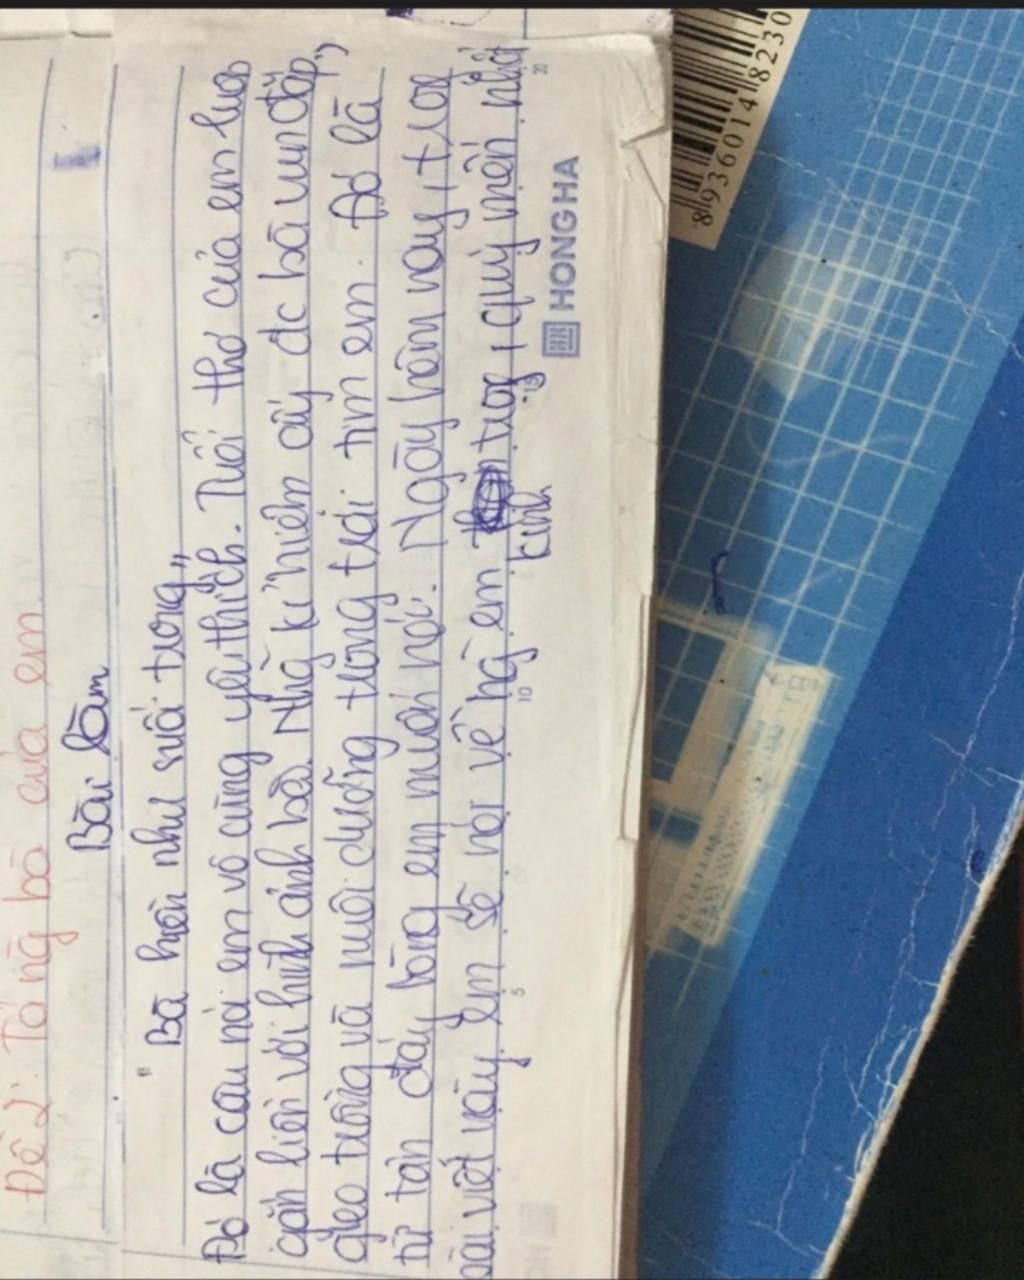 Đề 2: Tả ng bà của em.
Bài làm
"Bà hiền như suối trong"
Đó là câu nói em vô cùng yêu thích. Tuổi thơ của em luôn
gắn liền với hình ảnh bà. Nhg kỉ niệm ấy đc bà vun đắp,
gieo trồng và nuôi dưỡng trong trái tim em. Đó là
từ tận đáy lòng em muốn nói. Ngày hôm nay, trog
bài viết này em sẽ nói về ng em trog, quý mến nhất
kính
HONG HA
5
10
15
20
8 936014 8230